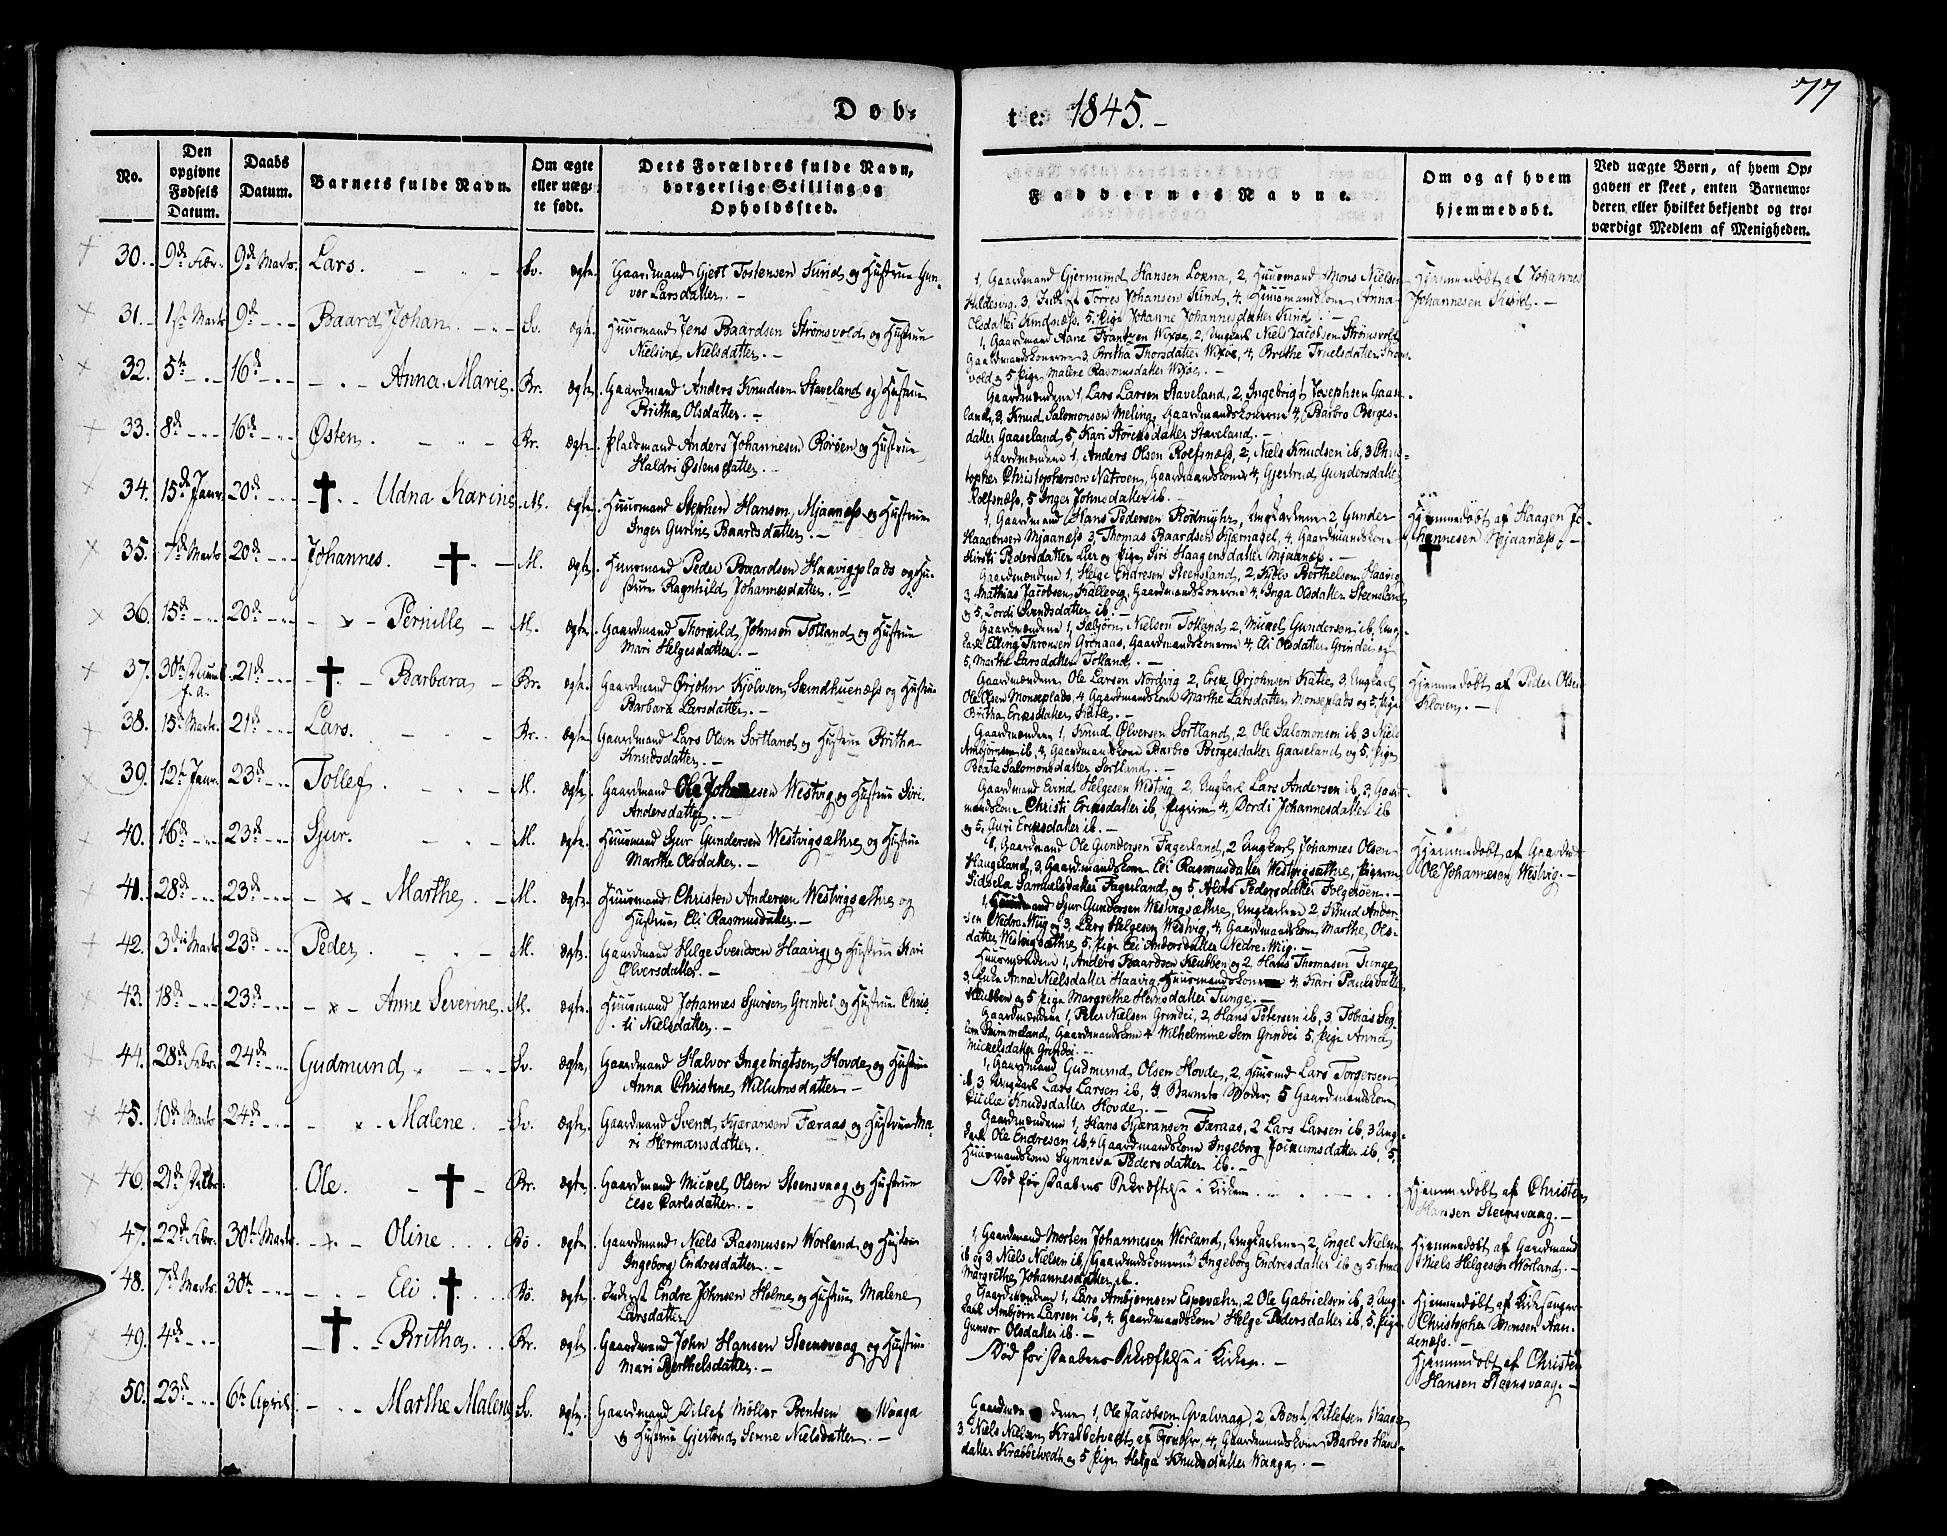 77
Døb-
te: 1845.-
No.
Den
opgivne
Fødsels
Datum.
Daabs
Datum.
Barnets fulde Navn.
Om ægte
eller uæg-
te født.
Dets Forældres fulde Navn,
borgerlige Stilling og
Opholdssted.
Faddernes Navne.
Om og af hvem
hjemmedøbt.
Ved uægte Børn, af hvem Op-
gaven er skeet, enten Barnemo-
deren, eller hvilket bekjendt og tro-
værdigt Medlem af Menigheden.
30. 9de Febr. 9de Marts. Lars. Sv. Ægte.
Gaardmand Tostensen og Hustrue Gun-
vor Larsdatter.
1, Gaardmand Gjermund Hansen 2, Huusmand Mons Nielsen
Torres Johansen 4, Huusmandskone Anna
Olsdatter 5, Pige Johanne Johannesdatter
Hjemmedøbt af Johannes
Johannesen
31. 1ste Marts 9de Baard Johan. Sv. Ægte.
Huusmand Jens Baardsen Strømsvold og Hustrue
Nielsine Nielsdatter.
1, Gaardmand Aane Frantzen 2, Ungkarl Niels Jacobsen Strømsvold
Gaardmandskonerne 3, Britha Thorsdatter 4, Brithe Truelsdatter Strøms-
vold og 5 Pige Malene Rasmusdatter
32. 5te 16de Anna Marie. Br. Ægte.
Gaardmand Anders Knudsen Staveland og Hustrue
Britha Olsdatter.
Gaardmændene 1, Lars Larsen Staveland, 2, Ingebrigt Josephsen Gaase-
land, 3, Knud Salomonsen Meling, Gaardmandskonerne 4, Barbro Berges-
datter Gaaseland, 5, Kari Størksdatter Staveland.
33. 8de 16de Østen. Br. Ægte.
Pladsmand Anders Johannesen Rorøen og Hustrue
Haldri Østensdatter.
Gaardmændene 1, Anders Olsen Roefsnæss, 2, Niels Knudsen ib, 3 Chris-
topher Christophersen Gaardmandskone 4, Gjertrud Gundersdatter
Roefsnæss, 5 Inger Johnsdatter ib.
34. 15de Janr. 20de Udna Karine M. Ægte.
Huusmand Stephen Hansen Mjaanæss og Hustrue
Inger Gurine Baardsdatter.
1, Gaardmand Hans Pedersen Rødmyhr, Ungkarlene 2, Gunder
Haagensen Mjaanæss 3, Thomas Baardsen Fjærnagel, 4, Gaardmandskone
Kirsti Pedersdatter Lier og Pige Siri Haagensdatter Mjaanæss.
Hjemmedøbt af Haagen Jo-
hannesen Mjaanæss.
35. 7de Marts 20de Johannes. M. Ægte.
Huusmand Peder Baardsen Haavigplads og Hu-
strue Ragnhild Johannesdatter.
Gaardmændene 1, Helge Endresen Steensland, 2, Berthelsen Haavig
3, Mathias Jacobsen Kallevig, Gaardmandskonerne 4, Inga Olsdatter Steensland
og 5, Svendsdatter ib.
36. 15de 20de Pernille M. Ægte.
Gaardmand Thorkild Johnsen Totland og Hustrue
Mari Helgesdatter.
Gaardmændene 1, Nielsen Totland, 2, Mickel Gundersen ib, Ung-
karl Elling Thronsen Grønaas, Gaardmandskonerne 4, Eli Olsdatter Grindei og
5, Marthe Larsdatter Totland.
37. 30te f. a. 21de Barbara Br. Ægte.
Gaardmand Ørjohn Kjølvsen Sundhuenæss og Hustrue
Barbara Larsdatter.
Gaardmændene, Ole Larsen Nordvig 2, Erik Ørjohnsen Katle 3, Ungkarl
Ole Olsen Monseplads, 4, Gaardmandskone Marthe Larsdatter Monseplads og 5, Pige
Britha Eriksdatter Katle.
Hjemmedøbt af Peder Olsen
Kloven.
38. 15de Marts. 21de Lars. Br. Ægte.
Gaardmand Lars Olsen Sortland og Hustrue Britha
Knudsdatter.
Gaardmændene 1, Knud Ølversen Sortland, 2, Ole Salomonsen ib, 3 Niels
Ambjørnsen ib, 4, Gaardmandskone Barbro Bergesdatter Gaaseland og 5, Pige
Beate Salomonsdatter Sortland.
39. 12te Janr. 23de Tollef. M. Ægte.
Gaardmand Ole Johannesen Westvig og Hustrue Siri
Andersdatter.
Gaardmand Eivind Helgesen Westvig 2, Ungkarl Lars Andersen ib, 3, Gaard-
mandskone Christi Eriksdatter ib, Pigerne 4, Dordi Johannesdatter ib
og 5, Guri Eriksdatter ib.
40. 16de 23de Sjur. M. Ægte.
Huusmand Sjur Gundersen Westvigsæthre og Hustrue
Marthe Olsdatter.
1, Gaardmand Ole Gundersen Fagerland, 2 Ungkarl Johannes Olsen
Haugeland, 3, Gaardmandskone Eli Rasmusdatter Westvigsæthre, Pigerne
Samuelsdatter Fagerland og 5, Pedersdatter Folgerøen.
Hjemmedøbt af Gaardm.
Ole Johannesen Westvig.
41. 28de 23de Marthe M. Ægte.
Huusmand Christen Andersen Westvigsæthre og
Hustrue Eli Rasmusdatter.
1, Huusmand Sjur Gundersen Westvigsæthre, Ungkarlene 2 Knud Ander-
sen Nedre Wiig og 3, Lars Helgesen Westvig, 4, Gaardmandskone Marthe Ols-
datter Westvigsæthre, 5, Pige Eli Andersdatter Nedre Wiig.
42. 3die Marts 23de Peder. M. Ægte.
Gaardmand Helge Svendsen Haavig og Hustrue Kari
Ølversdatter.
Huusmændene 1, Anders Baardsen Klubben og 2, Hans Thomasen Tunge,
3, Anna Nielsdatter Haavig, Huusmandskonerne 4, Kari Paulsdatter
Klubben og 5 Pige Margrethe Tunge.
43. 18de 23de Anne Severine. M. Ægte.
Huusmand Johannes Sjursen Grindei og Hustrue Chris-
ti Nielsdatter.
Gaardmændene 1, Peter Nielsen Grindei, 2, Hans Petersen ib, 3, Tobias
Gaardmandskone 4 Wilhelmine Grindei 5, Pige Anne
Mickelsdatter Grindei.
44. 28de Febr. 24de Gudmund Sv. Ægte.
Gaardmand Halvor Ingebrigtsen Hovde og Hustrue
Anna Christine Willumsdatter
1, Gaardmand Gudmund Olsen Hovde, 2, Huusmd Lars Torgersen
ib, 3, Ungkarl Lars Larsen ib, 4, Barnets Moder, 5 Gaardmandskone
Knudsdatter Hovde.
45. 10de Marts 24de Malene. Sv. Ægte.
Gaardmand Svend Kjæransen Færaas og Hustrue Ma-
ri Hermansdatter.
Gaardmændene 1, Hans Kjæransen Færaas, 2 Lars Larsen ib, 3 Ung-
karl Ole Endresen ib, 4 Gaardmandskone Ingeborg Jockumsdatter ib, 5,
Huusmandskone Synneva Pedersdatter ib.
46. 21de Ole. Br. Ægte.
Gaardmand Mickel Olsen Steensvaag og Hustrue
Else Carlsdatter.
Død før Daabens Bekræftelse i Kirken
Hjemmedøbt af Christen
Hansen Steensvaag.
47. 22de Febr. 30te Marts Oline Bø. Ægte.
Gaardmand Niels Rasmusen Worland og Hustrue
Ingeborg Endresdatter.
1, Gaardmand Morten Johannesen Werland, Ungkarlene 2, Engel Nielsen
ib og 3 Niels Nielsen ib, Gaardmandskonerne Ingeborg Endresdatter ib og 5, Anne
Margrethe Johannesdatter ib.
Hjemmedøbt af Gaardmand
Niels Helgesen Worland.
48. 7de Marts. 30te Eli. Bø. Ægte.
Inderst Endre Johnsen Holme og Hustrue Malene
Larsdatter
Gaardmændene 1, Lars Ambjørnsen Espevæhr, 2 Ole Gabrielsen ib, 3, Ung-
karl Ambjørn Larsen ib, 4, Gaardmandskone Helge Pedersdatter ib, 5, Pige
Gunvor Olsdatter ib.
Hjemmedøbt af Kirkesanger
Christopher Monsen Aan-
denæss.
49. 4de Britha. Br. Ægte.
Gaardmand John Hansen Steensvaag og Hustrue
Mari Berthelsdatter.
Død før Daabens Bekræftelse i Kirken.
Hjemmedøbt af Christen
Hansen Steensvaag.
50. 23de 6te April. Marthe Malene Sv. Ægte.
Gaardmand Ditlef Møller Bentsen Waage
og Hustrue Gjertrud Serine Nielsdatter.
Gaardmændene 1, Ole Jacobsen Qvalvaag, 2, Bent Ditlefsen Waage
3 Niels Nielsen Krabbetvedt 4, Gaardmandskone Barbro Hans-
datter Krabbetvedt og 5 Pige Helga Knudsdatter Waage.